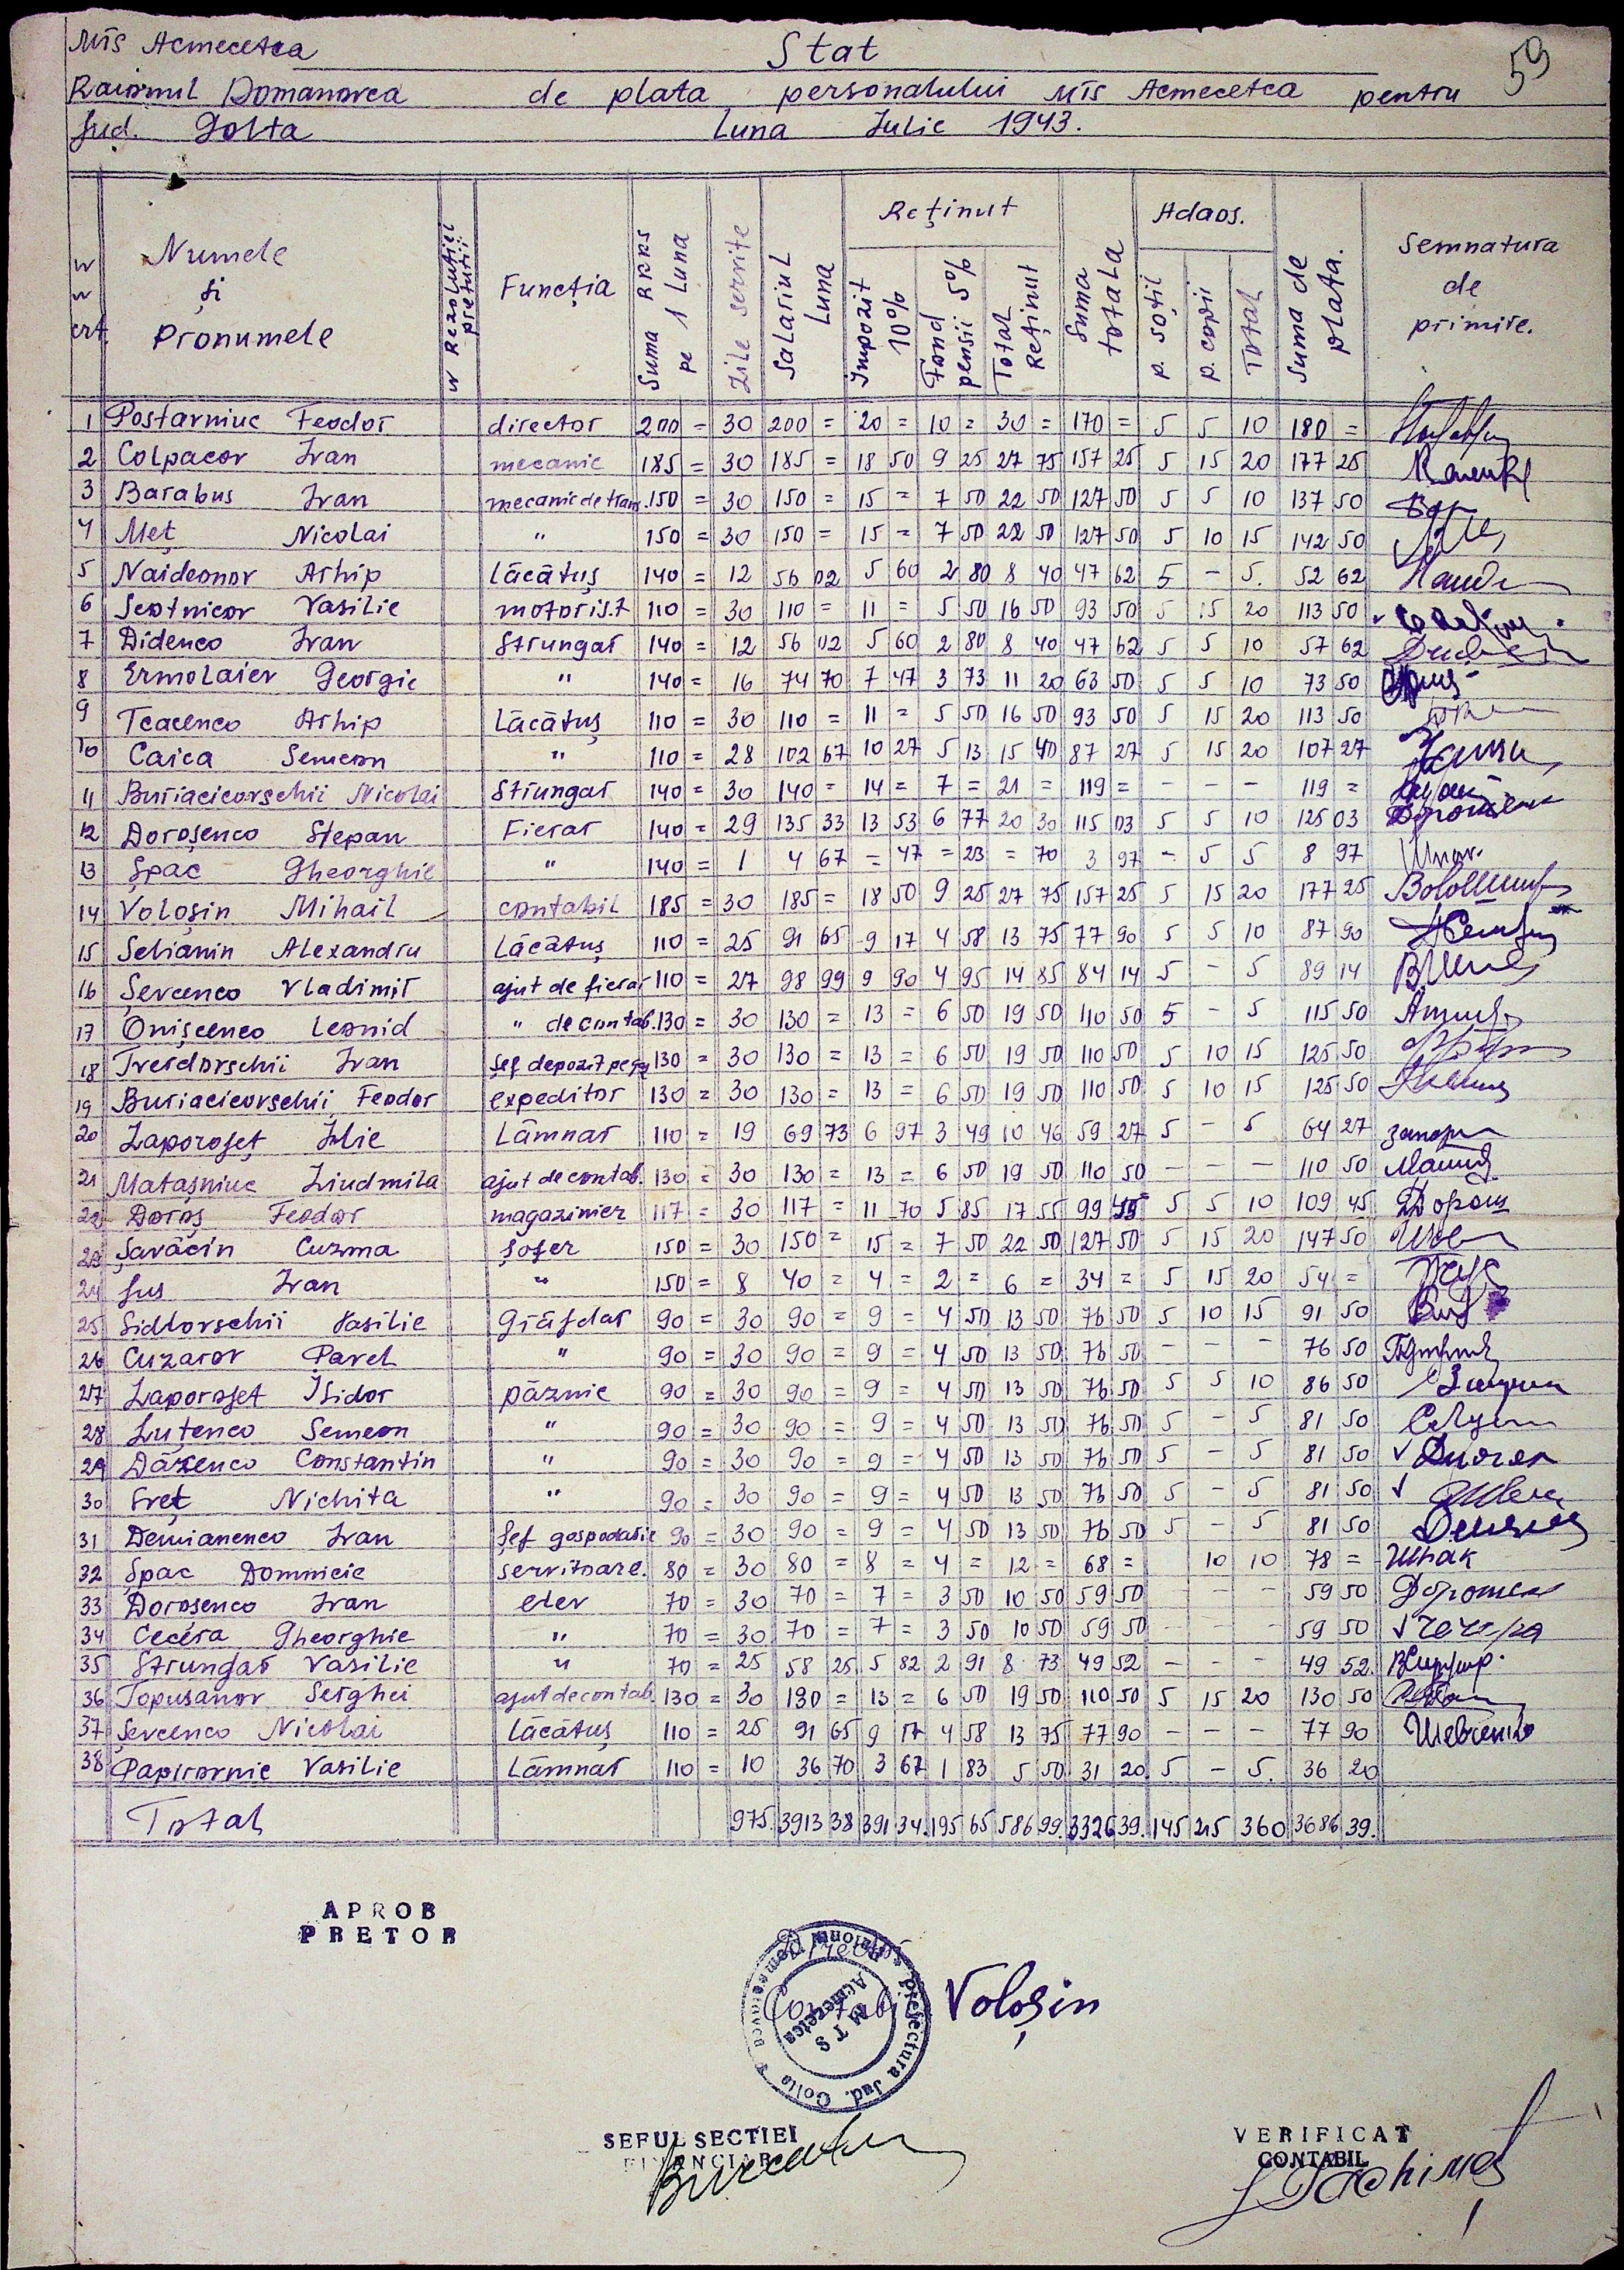 Mts Acmecetca Stat 59
Raionul Domanovca de plata personalului Mts Acmecetca pentru
Jud. Golta Luna Iulie 1943.
N N crt. Numele și Pronumele N Rezoluției preturii Funcția Suma RKKS pe 1 Luna Zile servite Salariul Luna Reținut Impozit 10% Fond pensii 5% Total Reținut Suma totala Adaos. p. soții p. copii Total Suma de plata. Semnatura de primire.
1 Postarniuc Feodor director 200 = 30 200 = 20 = 10 = 30 = 170 = 5 5 10 180 =
2 Colpacov Ivan mecanic 185 = 30 185 = 18 50 9 25 27 75 157 25 5 15 20 177 25
3 Barabus Ivan mecanic de tram. 150 = 30 150 = 15 = 7 50 22 50 127 50 5 5 10 137 50
4 Meț Nicolai " 150 = 30 150 = 15 = 7 50 22 50 127 50 5 10 15 142 50
5 Naideonov Arhip Lăcătuș 140 = 12 56 02 5 60 2 80 8 40 47 62 5 - 5. 52 62
6 Scotnicov Vasilie motorist 110 = 30 110 = 11 = 5 50 16 50 93 50 5 15 20 113 50
7 Didenco Ivan Strungar 140 = 12 56 02 5 60 2 80 8 40 47 62 5 5 10 57 62
8 Ermolaiev Georgie " 140 = 16 74 70 7 47 3 73 11 20 63 50 5 5 10 73 50
9 Tcacenco Arhip Lăcătuș 110 = 30 110 = 11 = 5 50 16 50 93 50 5 15 20 113 50
10 Caica Semeon " 110 = 28 102 67 10 27 5 13 15 40 87 27 5 15 20 107 27
11 Buriacicovschii Nicolai Strungar 140 = 30 140 = 14 = 7 = 21 = 119 = - - - 119 =
12 Doroșenco Stepan Fierar 140 = 29 135 33 13 53 6 77 20 30 115 03 5 5 10 125 03
13 Șpac Gheorghie " 140 = 1 4 67 = 47 = 23 = 70 3 97 - 5 5 8 97
14 Voloșin Mihail contabil 185 = 30 185 = 18 50 9 25 27 75 157 25 5 15 20 177 25
15 Selianin Alexandru Lăcătuș 110 = 25 91 65 9 17 4 58 13 75 77 90 5 5 10 87 90
16 Șevcenco Vladimir ajut de fierar 110 = 27 98 99 9 90 4 95 14 85 84 14 5 - 5 89 14
17 Onișcenco Leonid " de contab. 130 = 30 130 = 13 = 6 50 19 50 110 50 5 - 5 115 50
18 Tverdovschii Ivan Șef depozit 130 = 30 130 = 13 = 6 50 19 50 110 50 5 10 15 125 50
19 Buriacicovschii Feodor expeditor 130 = 30 130 = 13 = 6 50 19 50 110 50 5 10 15 125 50
20 Zaporojeț Ilie Lămnar 110 = 19 69 73 6 97 3 49 10 46 59 27 5 - 5 64 27
21 Matașniuc Liudmila ajut de contab. 130 = 30 130 = 13 = 6 50 19 50 110 50 - - - 110 50
22 Doroș Feodor magaziner 117 = 30 117 = 11 70 5 85 17 55 99 45 5 5 10 109 45 Дорош
23 Șavăcin Cuzma șofer 150 = 30 150 = 15 = 7 50 22 50 127 50 5 15 20 147 50
24 Jus Ivan " 150 = 8 40 = 4 = 2 = 6 = 34 = 5 15 20 54 =
25 Sidlovschii Vasilie Grăjdar 90 = 30 90 = 9 = 4 50 13 50 76 50 5 10 15 91 50
26 Cuzarov Pavel " 90 = 30 90 = 9 = 4 50 13 50 76 50 - - - 76 50
27 Zaporojet Isidor păznic 90 = 30 90 = 9 = 4 50 13 50 76 50 5 5 10 86 50
28 Luțenco Semeon " 90 = 30 90 = 9 = 4 50 13 50 76 50 5 - 5 81 50
29 Dăzenco Constantin " 90 = 30 90 = 9 = 4 50 13 50 76 50 5 - 5 81 50
30 Sveț Nichita " 90 = 30 90 = 9 = 4 50 13 50 76 50 5 - 5 81 50
31 Demianenco Ivan Șef gospodarie 90 = 30 90 = 9 = 4 50 13 50 76 50 5 - 5 81 50
32 Șpac Domnicie servitoare. 80 = 30 80 = 8 = 4 = 12 = 68 = 10 10 78 = Шпак
33 Doroșenco Ivan elev 70 = 30 70 = 7 = 3 50 10 50 59 50 - - - 59 50
34 Cecera Gheorghie " 70 = 30 70 = 7 = 3 50 10 50 59 50 - - - 59 50 Чечера
35 Strungar Vasilie " 70 = 25 58 25 5 82 2 91 8 73 49 52 - - - 49 52.
36 Topusanov Serghei ajut de contab. 130 = 30 130 = 13 = 6 50 19 50 110 50 5 15 20 130 50
37 Șevcenco Nicolai Lăcătuș 110 = 25 91 65 9 17 4 58 13 75 77 90 - - - 77 90 Шевченко
38 Papirovnic Vasilie Lămnar 110 = 10 36 70 3 67 1 83 5 50 31 20 5 - 5. 36 20
Total 975. 3913 38 391 34. 195 65 586 99. 3326 39. 145 215 360 3686 39.
APROB
PRETOR
Contabil Voloșin
Prefectura Jud. Golta
MTS
Acmecetca
SEFUL SECTIEI
FINANCIAR
VERIFICAT
CONTABIL